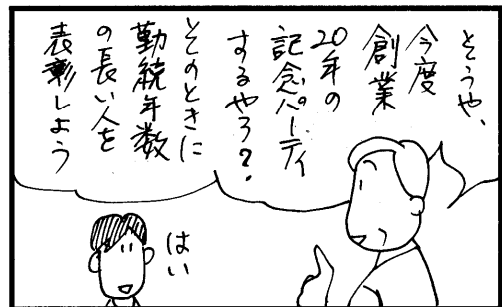 そうや、
今度
創業
20年の
記念パーティ
するやろ?
そのときに
勤続年数
の長い人を
表彰しよう
はい